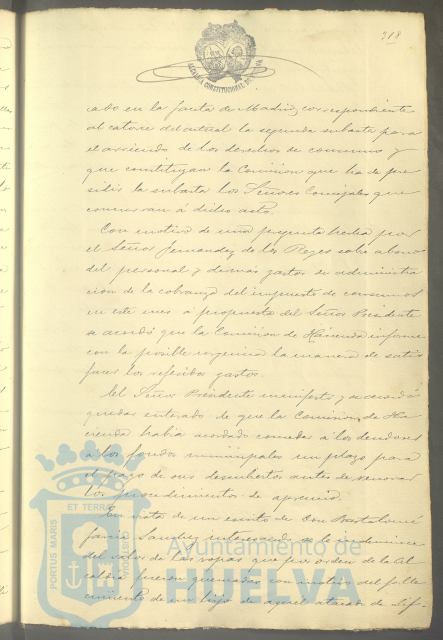 318
ALCALDIA CONSTITUCIONAL DE HUELVA
cado en la Gaceta de Madrid, correspondiente
al catorce del actual la segunda subasta para
el arriendo de los derechos de consumo y
que constituyan la Comision que ha de pre
sidir la subasta los Señores Concejales que
concurran á dicho acto.
Con motivo de una pregunta hecha por
el Señor Fernandez de los Reyes sobre abono
del personal y demas gastos de administra
cion de la cobranza del impuesto de consumos
en este mes á propuesta del Señor Presidente
se acordó que la Comision de Hacienda informe
con la posible urgencia la manera de satis
facer los referidos gastos.
El Señor Presidente manifestó y se acordó
quedar enterado de que la Comision de Ha
cienda habia acordado conceder á los deudores
á los fondos municipales un plazo para
el pago de sus descubiertos antes de renovar
los procedimientos de apremio.
En vista de un escrito de Don Bartolomé
Garcia Sanchez interesando se le indemnice
del valor de las ropas que por orden de la Al
caldia fueron quemadas con motivo del falle
cimiento de un hijo de aquel atacado de dif-
PORTUS MARIS ET TERRAE CUSTODIA
Ayuntamiento de
HUELVA